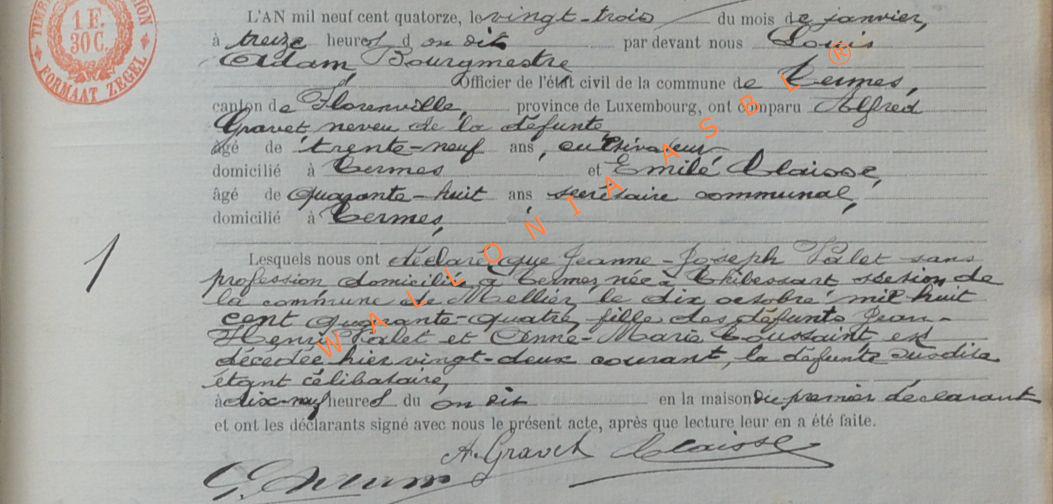 TIMB
ION
1 F.
30 C.
FORMAAT ZEGEL
L'AN mil neuf cent quatorze, le vingt-trois du mois de janvier,
à treize heures d on dit par devant nous Louis
Adam, Bourgmestre
Officier de l'état civil de la commune de Termes,
canton de Florenville, province de Luxembourg, ont comparu Alfred
Gravet neveu de la défunte
âgé de trente-neuf ans, cultivateur
domicilié à Termes et Emile Claisse,
âgé de quarante-huit ans secrétaire communal,
domicilié à Termes,
1
Lesquels nous ont déclaré que Jeanne-Joseph Valet sans
profession domiciliée à Termes née à Thibessart section de
la commune de Mellier, le dix octobre mil huit
cent quarante-quatre, fille des défunts Jean-
Henri Valet et Anne-Marie Toussaint est
décédée hier vingt-deux courant, la défunte susdite
étant célibataire,
à dix-neuf heures du on dit en la maison du premier déclarant
et ont les déclarants signé avec nous le présent acte, après que lecture leur en a été faite.
A. Gravet Claisse
WALLONIA ASBL ®